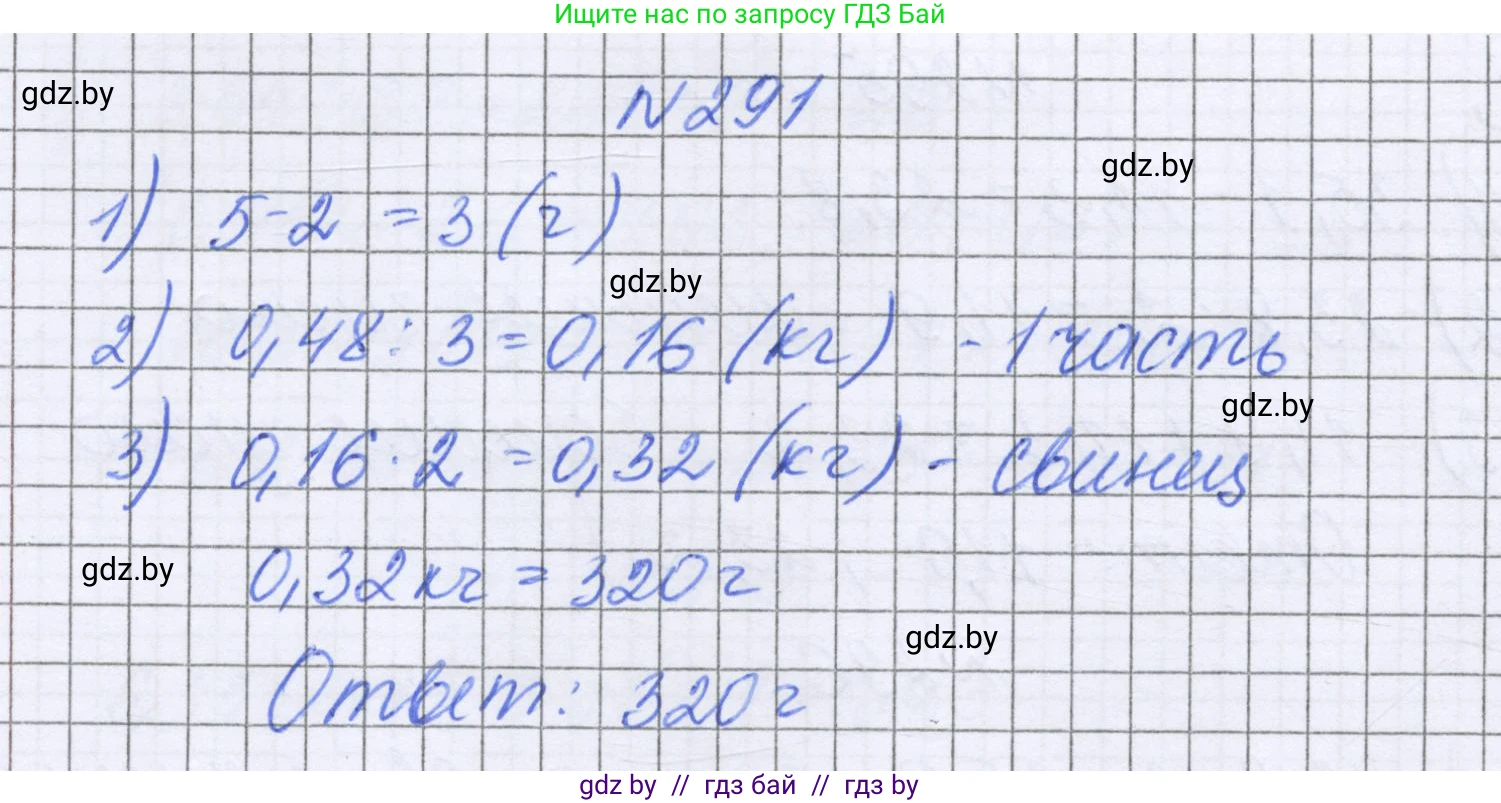 Ищите нас по запросу ГДЗ Бай
gdz.by
N291
gdz.by
1) 5-2 = 3 (г)
gdz.by
2) 0,48 : 3 = 0,16 (кг) - 1 часть
gdz.by
3) 0,16 · 2 = 0,32 (кг) - свинец
gdz.by
0,32 кг = 320 г
gdz.by
Ответ: 320 г
gdz by // гдз бай // гдз by